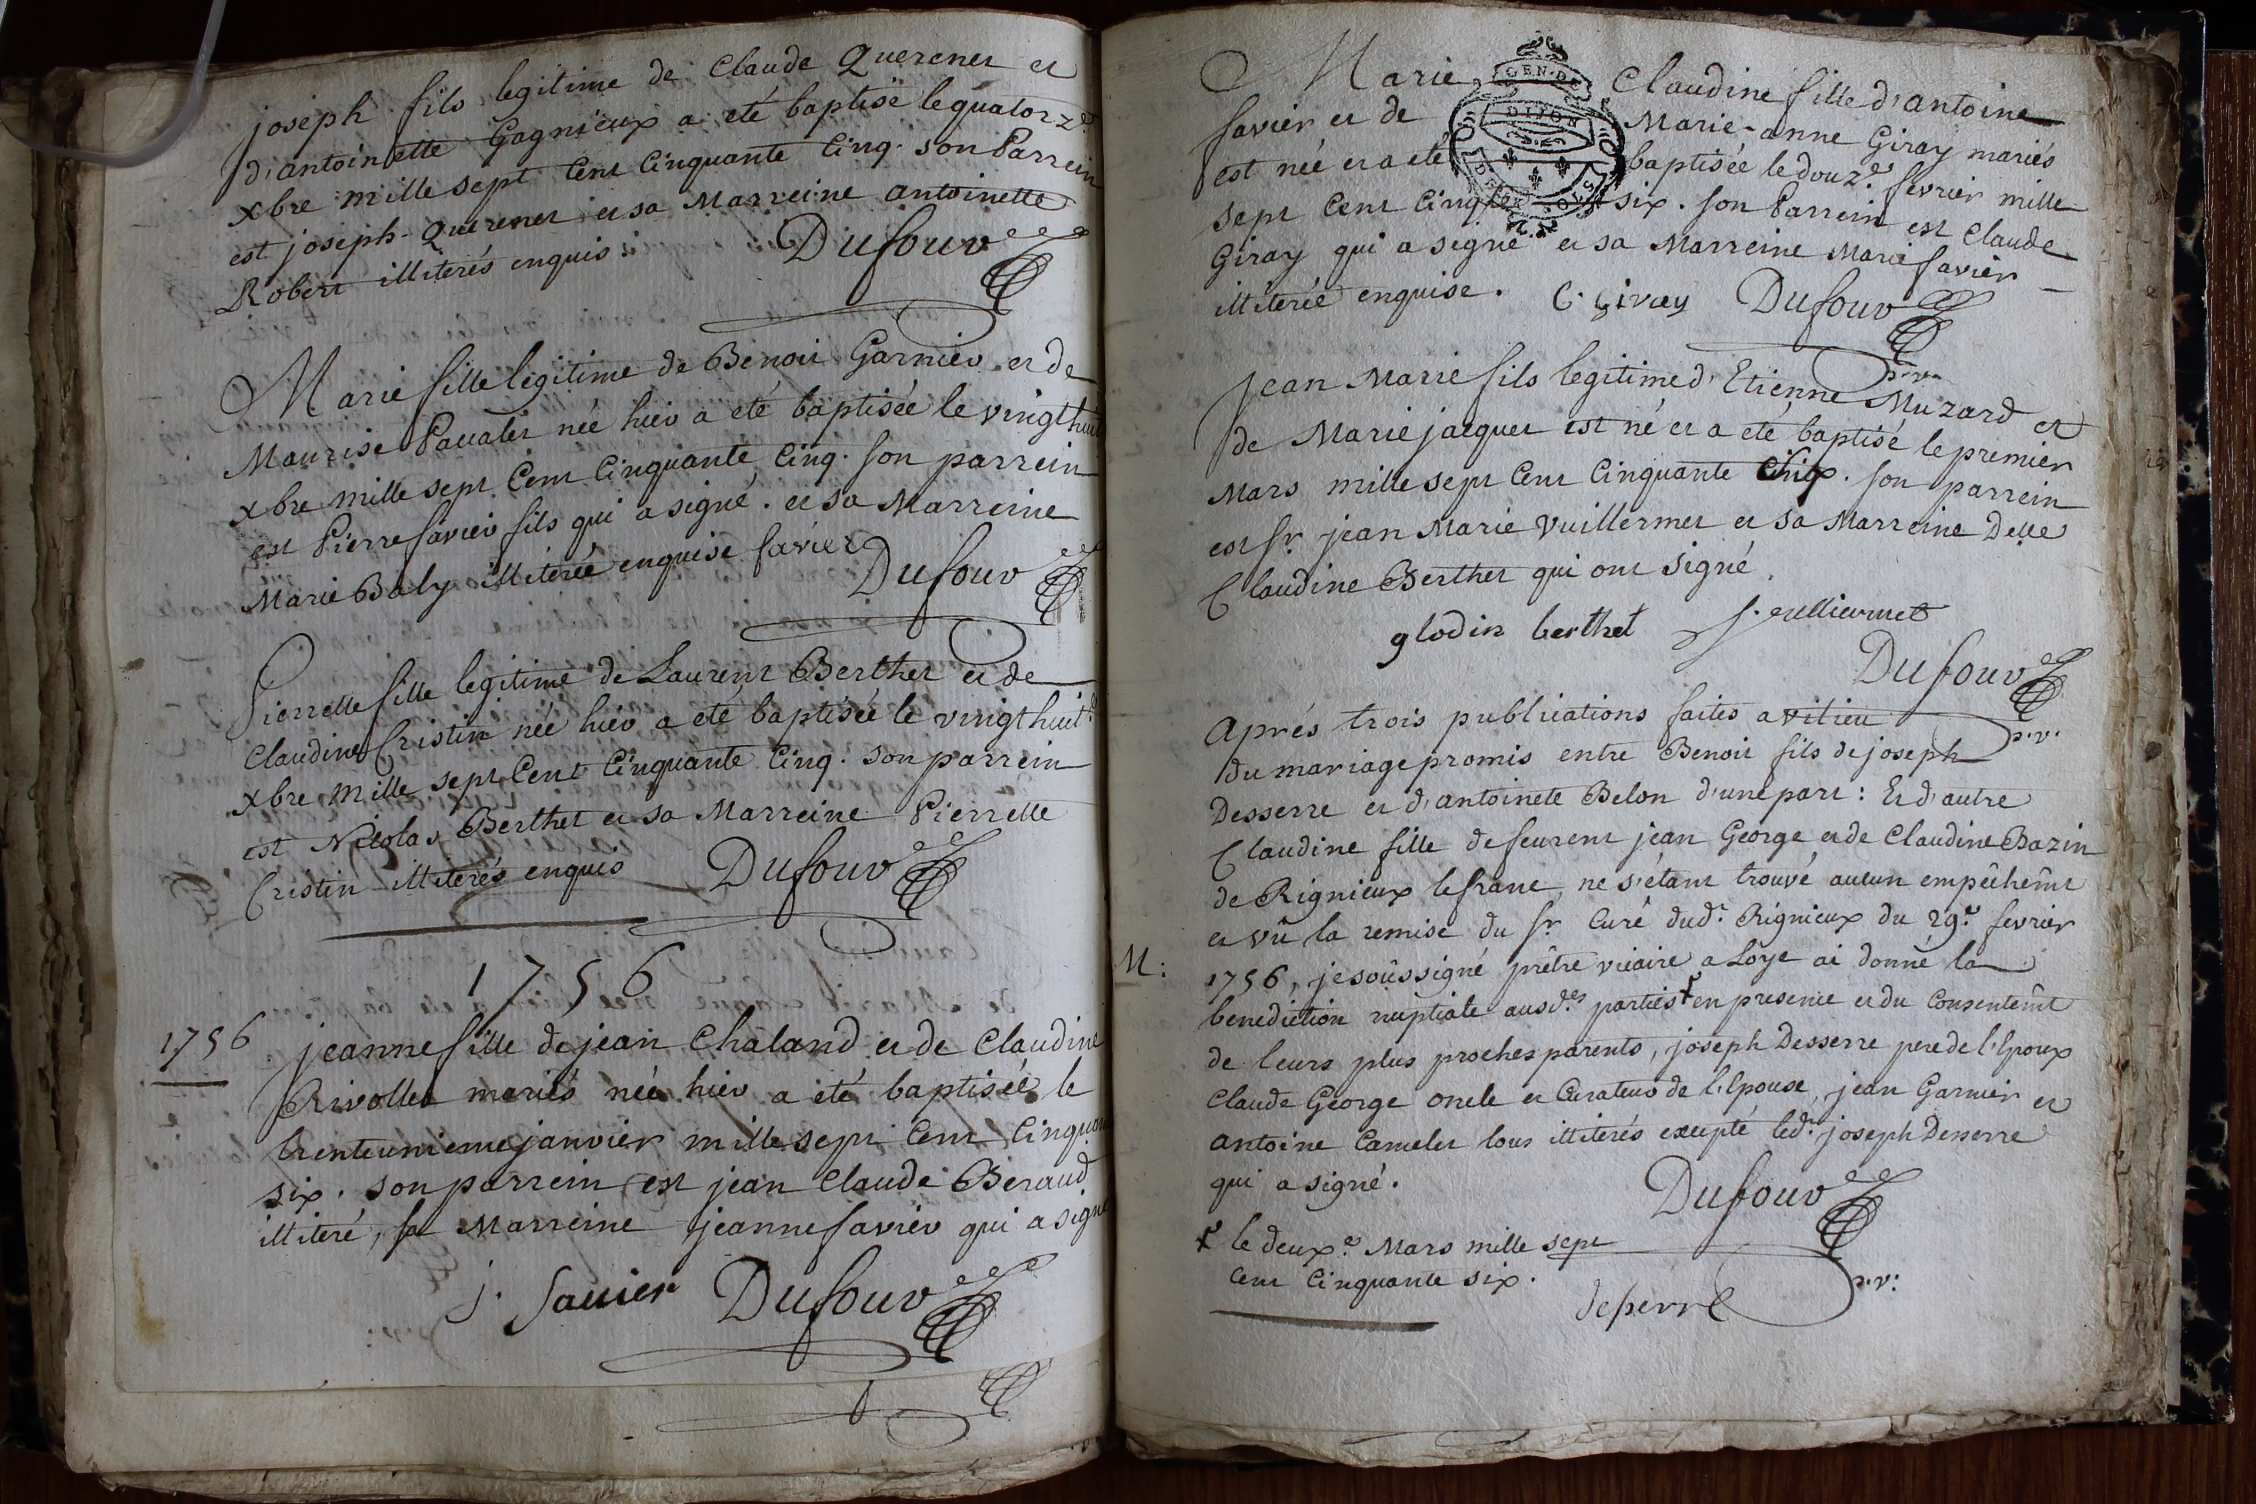 joseph fils legitime de Claude Querenet et
d'antoinette Gagnieux a eté baptisé le quatorze
xbre mille sept Cent Cinquante Cinq. son Parrein
est joseph Querenet et sa Marreine antoinette
Robert illiterés enquis.
Dufour
Marie fille legitime de Benoit Garnier et de
Maurise née hier a eté baptisée le vingthuit
xbre mille sept Cent Cinquante Cinq. son parrein
est Pierre favier fils qui a signé. et sa Marreine
Marie Baly illiterée enquise favier
Dufour
Pierrette fille legitime de Laurent Berthet et de
Claudine Cristin née hier a eté baptisée le vingthuit.e
xbre mille sept Cent Cinquante Cinq. son parrein
est Nicolas Berthet et sa Marreine Pierrette
Cristin illiterés enquis Dufour
1756
1756 jeanne fille de jean Chaland et de Claudine
Rivollet mariés née hier a eté baptisée le
trenteunieme janvier mille sept Cent Cinquante
six. son parrein est jean Claude Beraud
illiteré, sa Marreine jeanne favier qui a signé
j. favier Dufour
Marie Claudine fille d'antoine
favier et de Marie-anne Giray mariés
est née et a eté baptisée le douz.e fevrier mille
GEN. DE
DIJON
sept Cent Cinq.te six. son Parrein est Claude
Giray qui a signé et sa Marreine Marie favier
illiterée enquise. C. giray Dufour
p.v.
jean Marie fils legitime d'Etienne Muzard et
de Marie jacquet est né et a eté baptisé le premier
Mars mille sept Cent Cinquante six. son parrein
est Sr. jean Marie Vuillermet et sa Marreine Delle
Claudine Berthet qui ont signé
glodin berthet
Dufour
p.v.
Aprés trois publications faites a vilieu
du mariage promis entre Benoit fils de joseph
Desserre et d'antoinete Belon d'une part: Et d'autre
Claudine fille de feurent jean George et de Claudine Bazin
de Rignieux lefranc, ne s'étant trouvé aucun empêchemt
et vû la remise du Sr. Curé dud.t Rignieux du 29.e fevrier
M:
1756, je soussigné prêtre vicaire a Loye ai donné la
benediction nuptiale ausd.es parties + en presence et du Consentemt
de leurs plus proches parents, joseph Desserre pere de l'Epoux
Claude George oncle et Curateur de l'Epouse, jean Garnier et
antoine Camelet tous illiterés excepté led.t joseph Desserre
qui a signé.
Dufour
p.v:
+ le deux.e Mars mille sept
Cent Cinquante six.
deserre